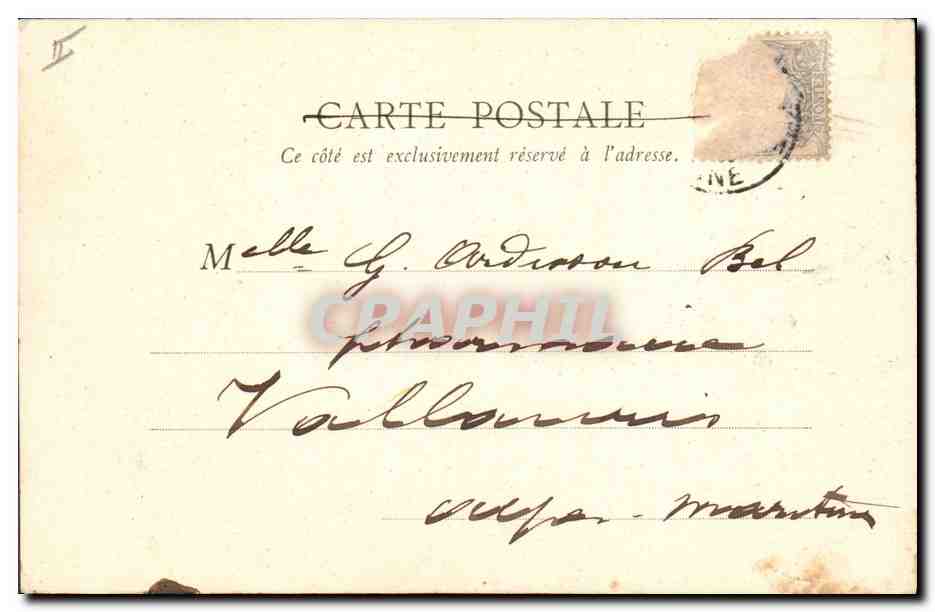 II
CARTE POSTALE
Ce côté est exclusivement réservé à l'adresse.
POSTE
NE
Melle G. Ardisson Bel
CPRAPHIL
pharmacie
Vallauris
Alpes-Maritimes